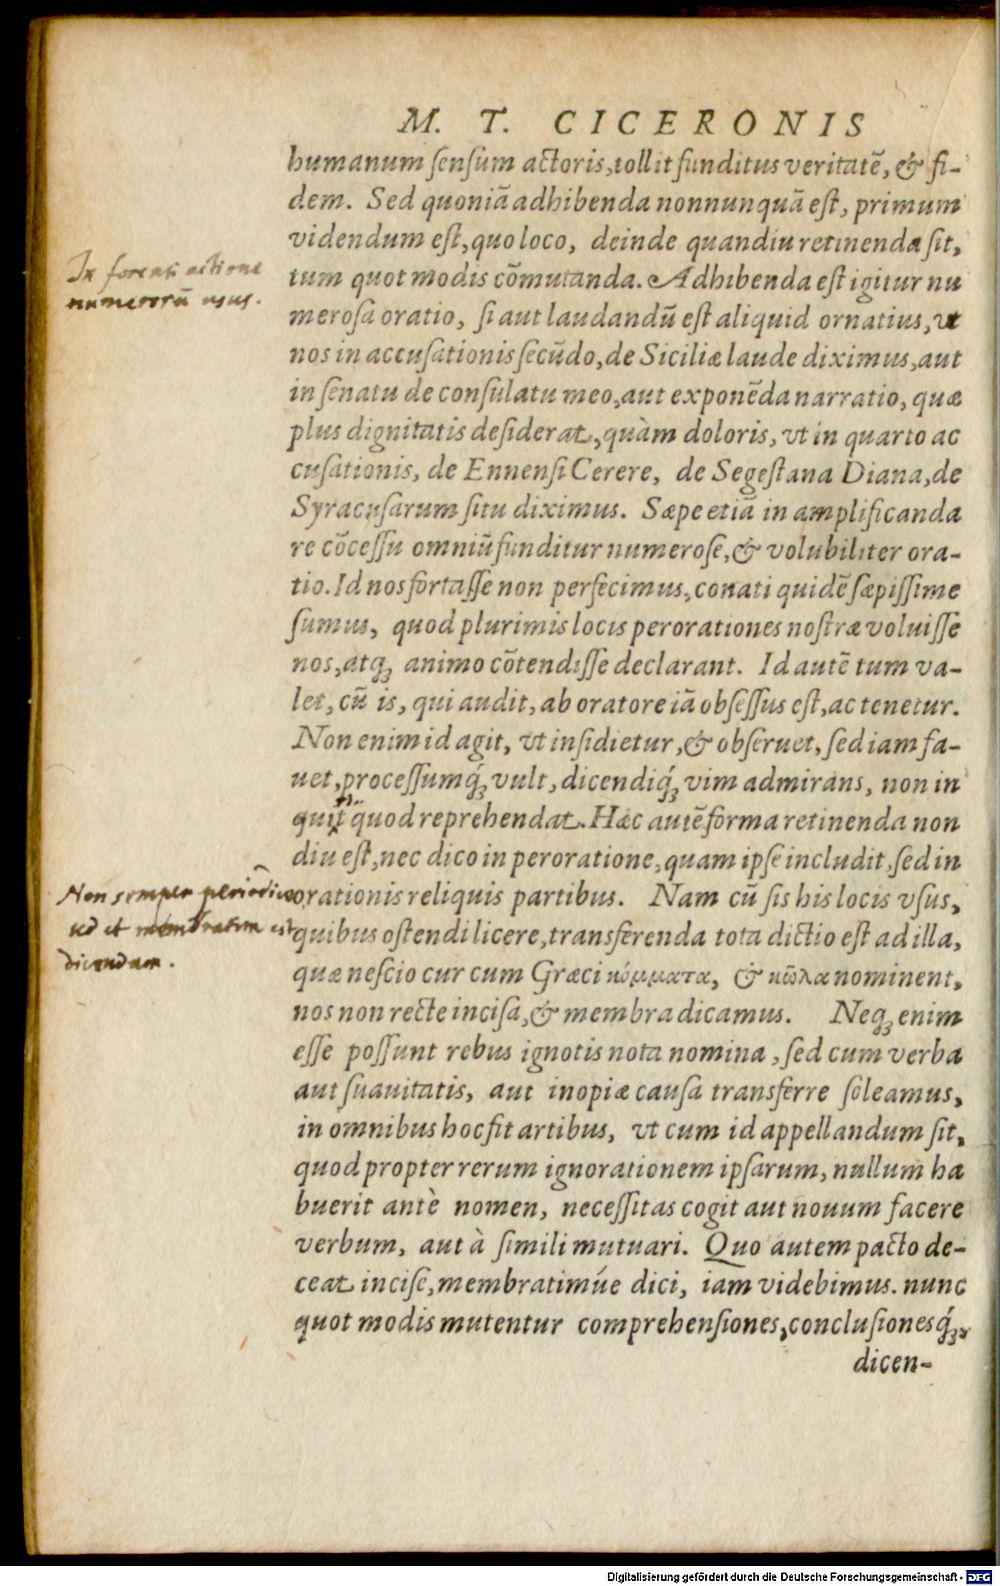 M. T. CICERONIS
humanum sensum actoris, tollit funditus veritatē, & fi-
dem. Sed quoniā adhibenda nonnunquā est, primum
videndum est, quo loco, deinde quandiu retinenda sit,
In forensi actione
tum quot modis cōmutanda. Adhibenda est igitur nu
numerorū usus.
merosa oratio, si aut laudandū est aliquid ornatius, vt
nos in accusationis secūdo, de Siciliæ laude diximus, aut
in senatu de consulatu meo, aut exponēda narratio, quæ
plus dignitatis desiderat, quàm doloris, vt in quarto ac
cusationis, de Ennensi Cerere, de Segestana Diana, de
Syracusarum situ diximus. Sæpe etiā in amplificanda
re cōcessu omniū funditur numerose, & volubiliter ora-
tio. Id nos fortasse non perfecimus, conati quidē sæpissime
sumus, quod plurimis locis perorationes nostræ voluisse
nos, atq; animo cōtendisse declarant. Id autē tum va-
let, cū is, qui audit, ab oratore iā obsessus est, ac tenetur.
Non enim id agit, vt insidietur, & obseruet, sed iam fa-
uet, processumq́; vult, dicendiq́; vim admirans, non in
quit quod reprehendat. Hæc autē forma retinenda non
diu est, nec dico in peroratione, quam ipse includit, sed in
Non semper periodice
orationis reliquis partibus. Nam cū sis his locis vsus,
sed et membratim est
quibus ostendi licere, transferenda tota dictio est ad illa,
dicendum.
quæ nescio cur cum Græci κόμματα, & κῶλα nominent,
nos non recte incisa, & membra dicamus. Neq; enim
esse possunt rebus ignotis nota nomina, sed cum verba
aut suauitatis, aut inopiæ causa transferre soleamus,
in omnibus hoc fit artibus, vt cum id appellandum sit,
quod propter rerum ignorationem ipsarum, nullum ha
buerit antè nomen, necessitas cogit aut nouum facere
verbum, aut à simili mutuari. Quo autem pacto de-
ceat incise, membratimúe dici, iam videbimus. nunc
quot modis mutentur comprehensiones, conclusionesq́;,
dicen-
Digitalisierung gefördert durch die Deutsche Forschungsgemeinschaft - DFG